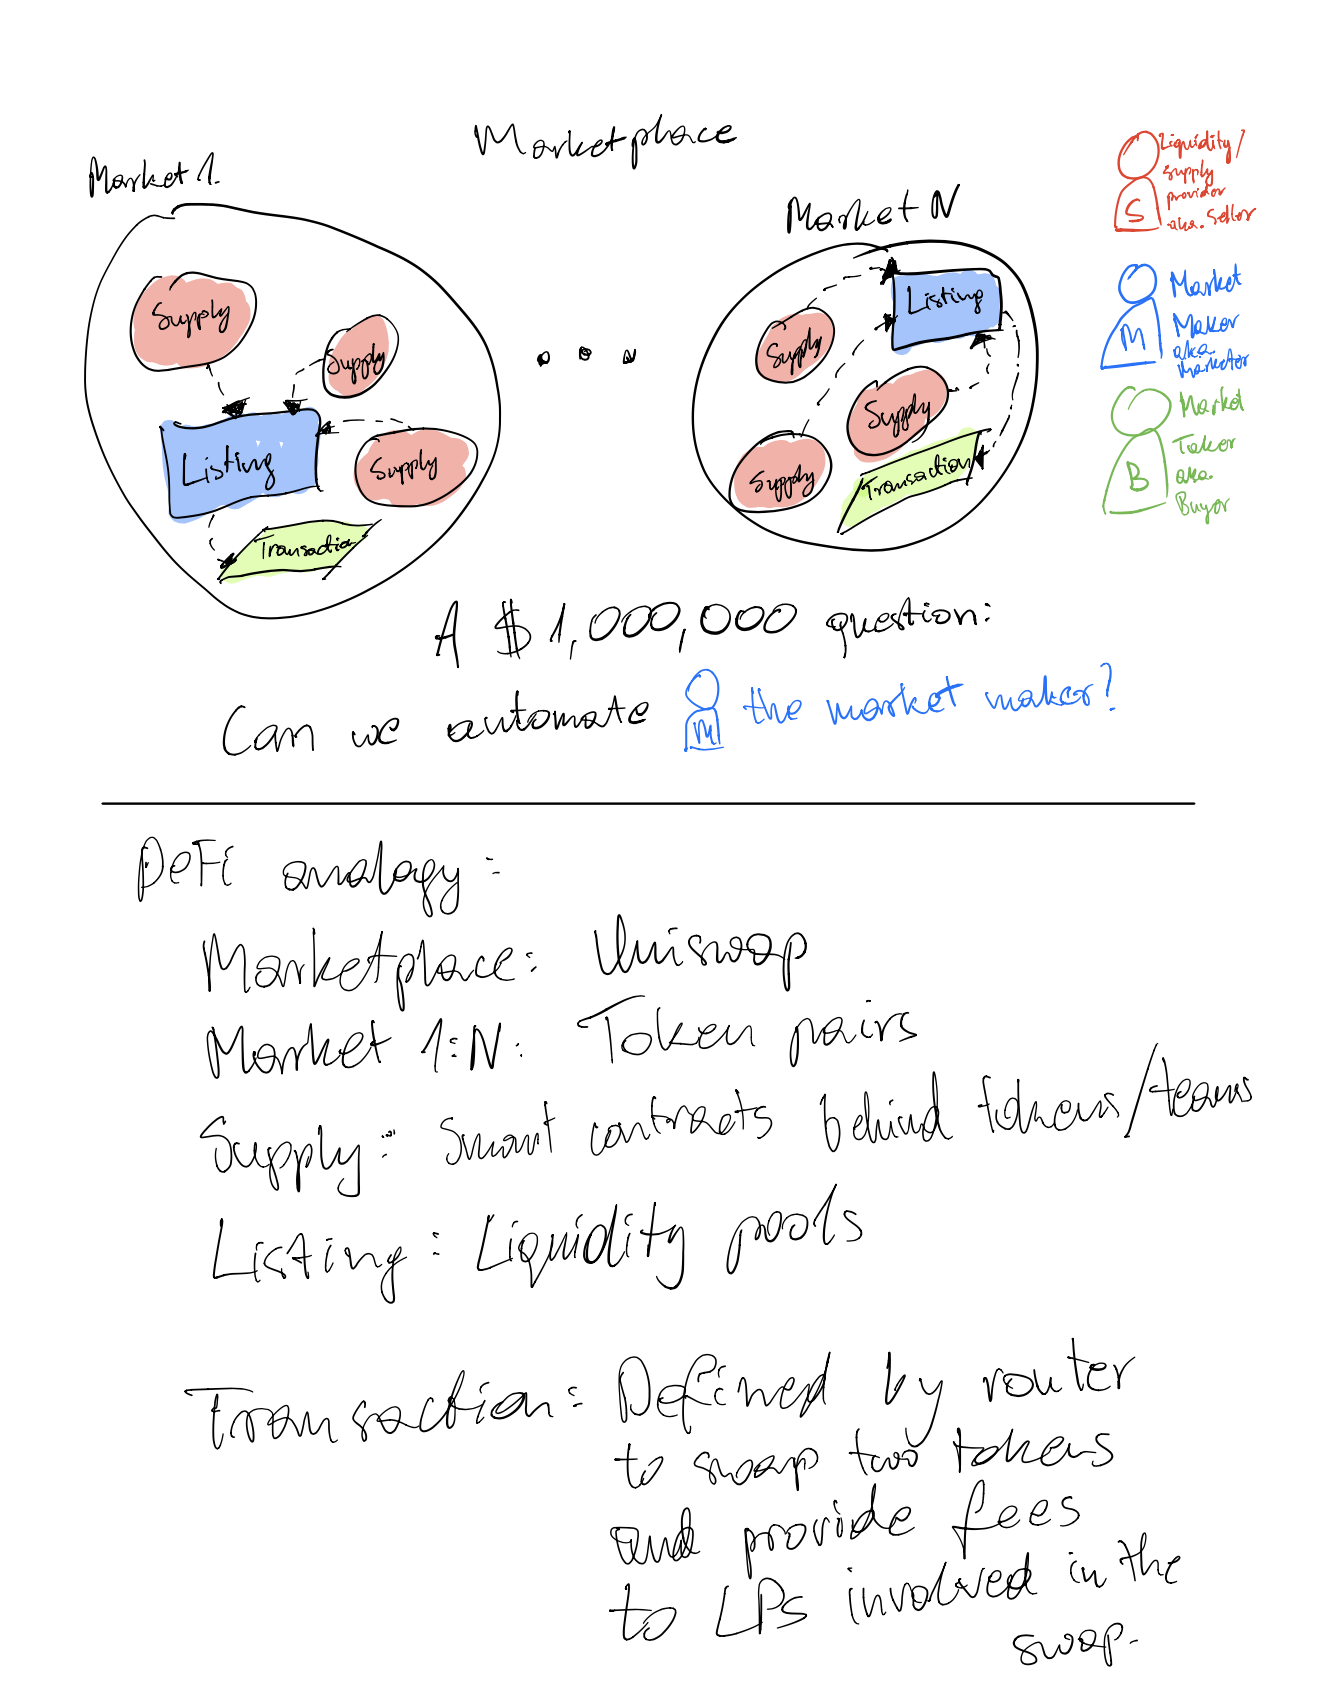 Marketplace
Market 1.
Supply
Supply
Supply
Listing
Transactio
Market N
Listing
Supply
Supply
Supply
Transaction
Liquidity/
supply
provider
aka. Seller
S
Market
Maker
aka.
Marketer
M
Market
Taker
aka.
Buyer
B
A $1,000,000 question:
Can we automate M the market maker?
DeFi analogy:
Marketplace: Uniswap
Market 1:N: Token pairs
Supply: Smart contracts behind tokens/teams
Listing: Liquidity pools
Transaction: Defined by router
to swap two tokens
and provide fees
to LPs involved in the
swap.